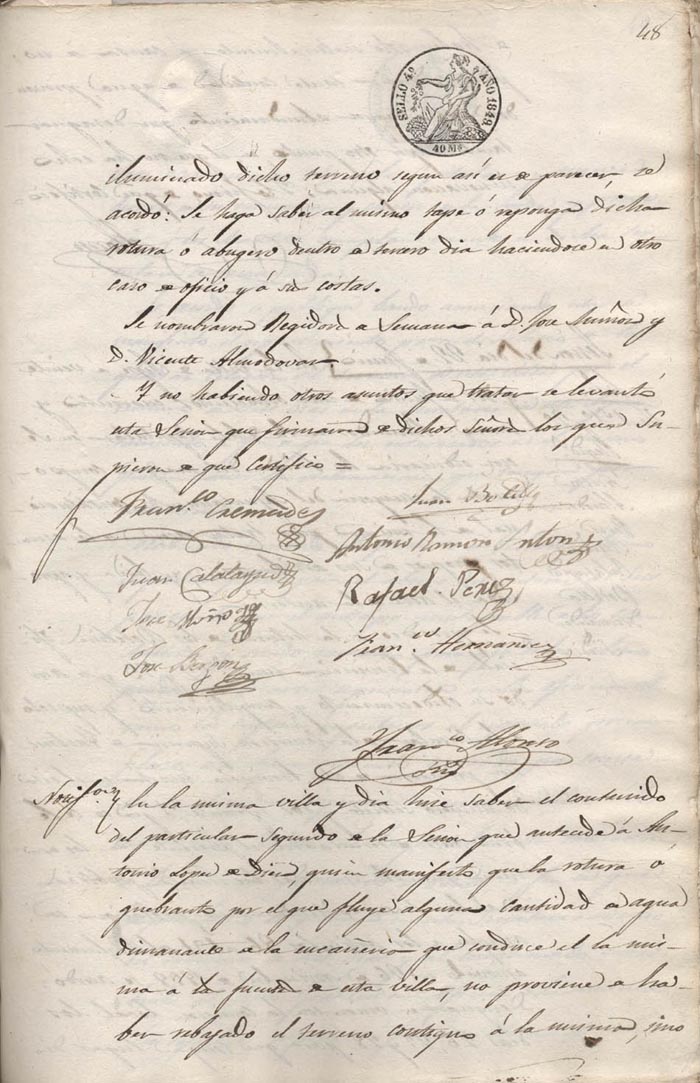 48
SELLO 4º AÑO 1849.
40 Ms
iluminado dicho terreno segun así es de parecer, se
acordó: Se haga saber al mismo tape ó reponga dicha
rotura ó abugero dentro de tercero dia haciendose en otro
caso de oficio y á su costas.
Se nombraron Regidores de Semana á D. Jose Muñoz y
D. Vicente Almodovar,
Y no habiendo otros asuntos que tratar se levantó
esta Sesion que firmaron de dichos Señores los que su-
pieron de que Certifico =
Fran.co Cremades
Juan
Antonio Ramon Anton
Juan Calatayud
Rafael Perez
Jose Muñoz
Fran.co Hernandez
Jose
Fran.co Alonso
Srio
Notif.on En la misma villa y dia hice saber el contenido
del particular segundo de la Sesion que antecede á An-
tonio Lopez de Diego, quien manifestó que la rotura ó
quebranto por el que fluye alguna cantidad de agua
dimanante de la encañeria que conduce el la mis-
ma á la fuente de esta villa, no proviene de ha-
ber rebajado el terreno contiguo á la misma, sino